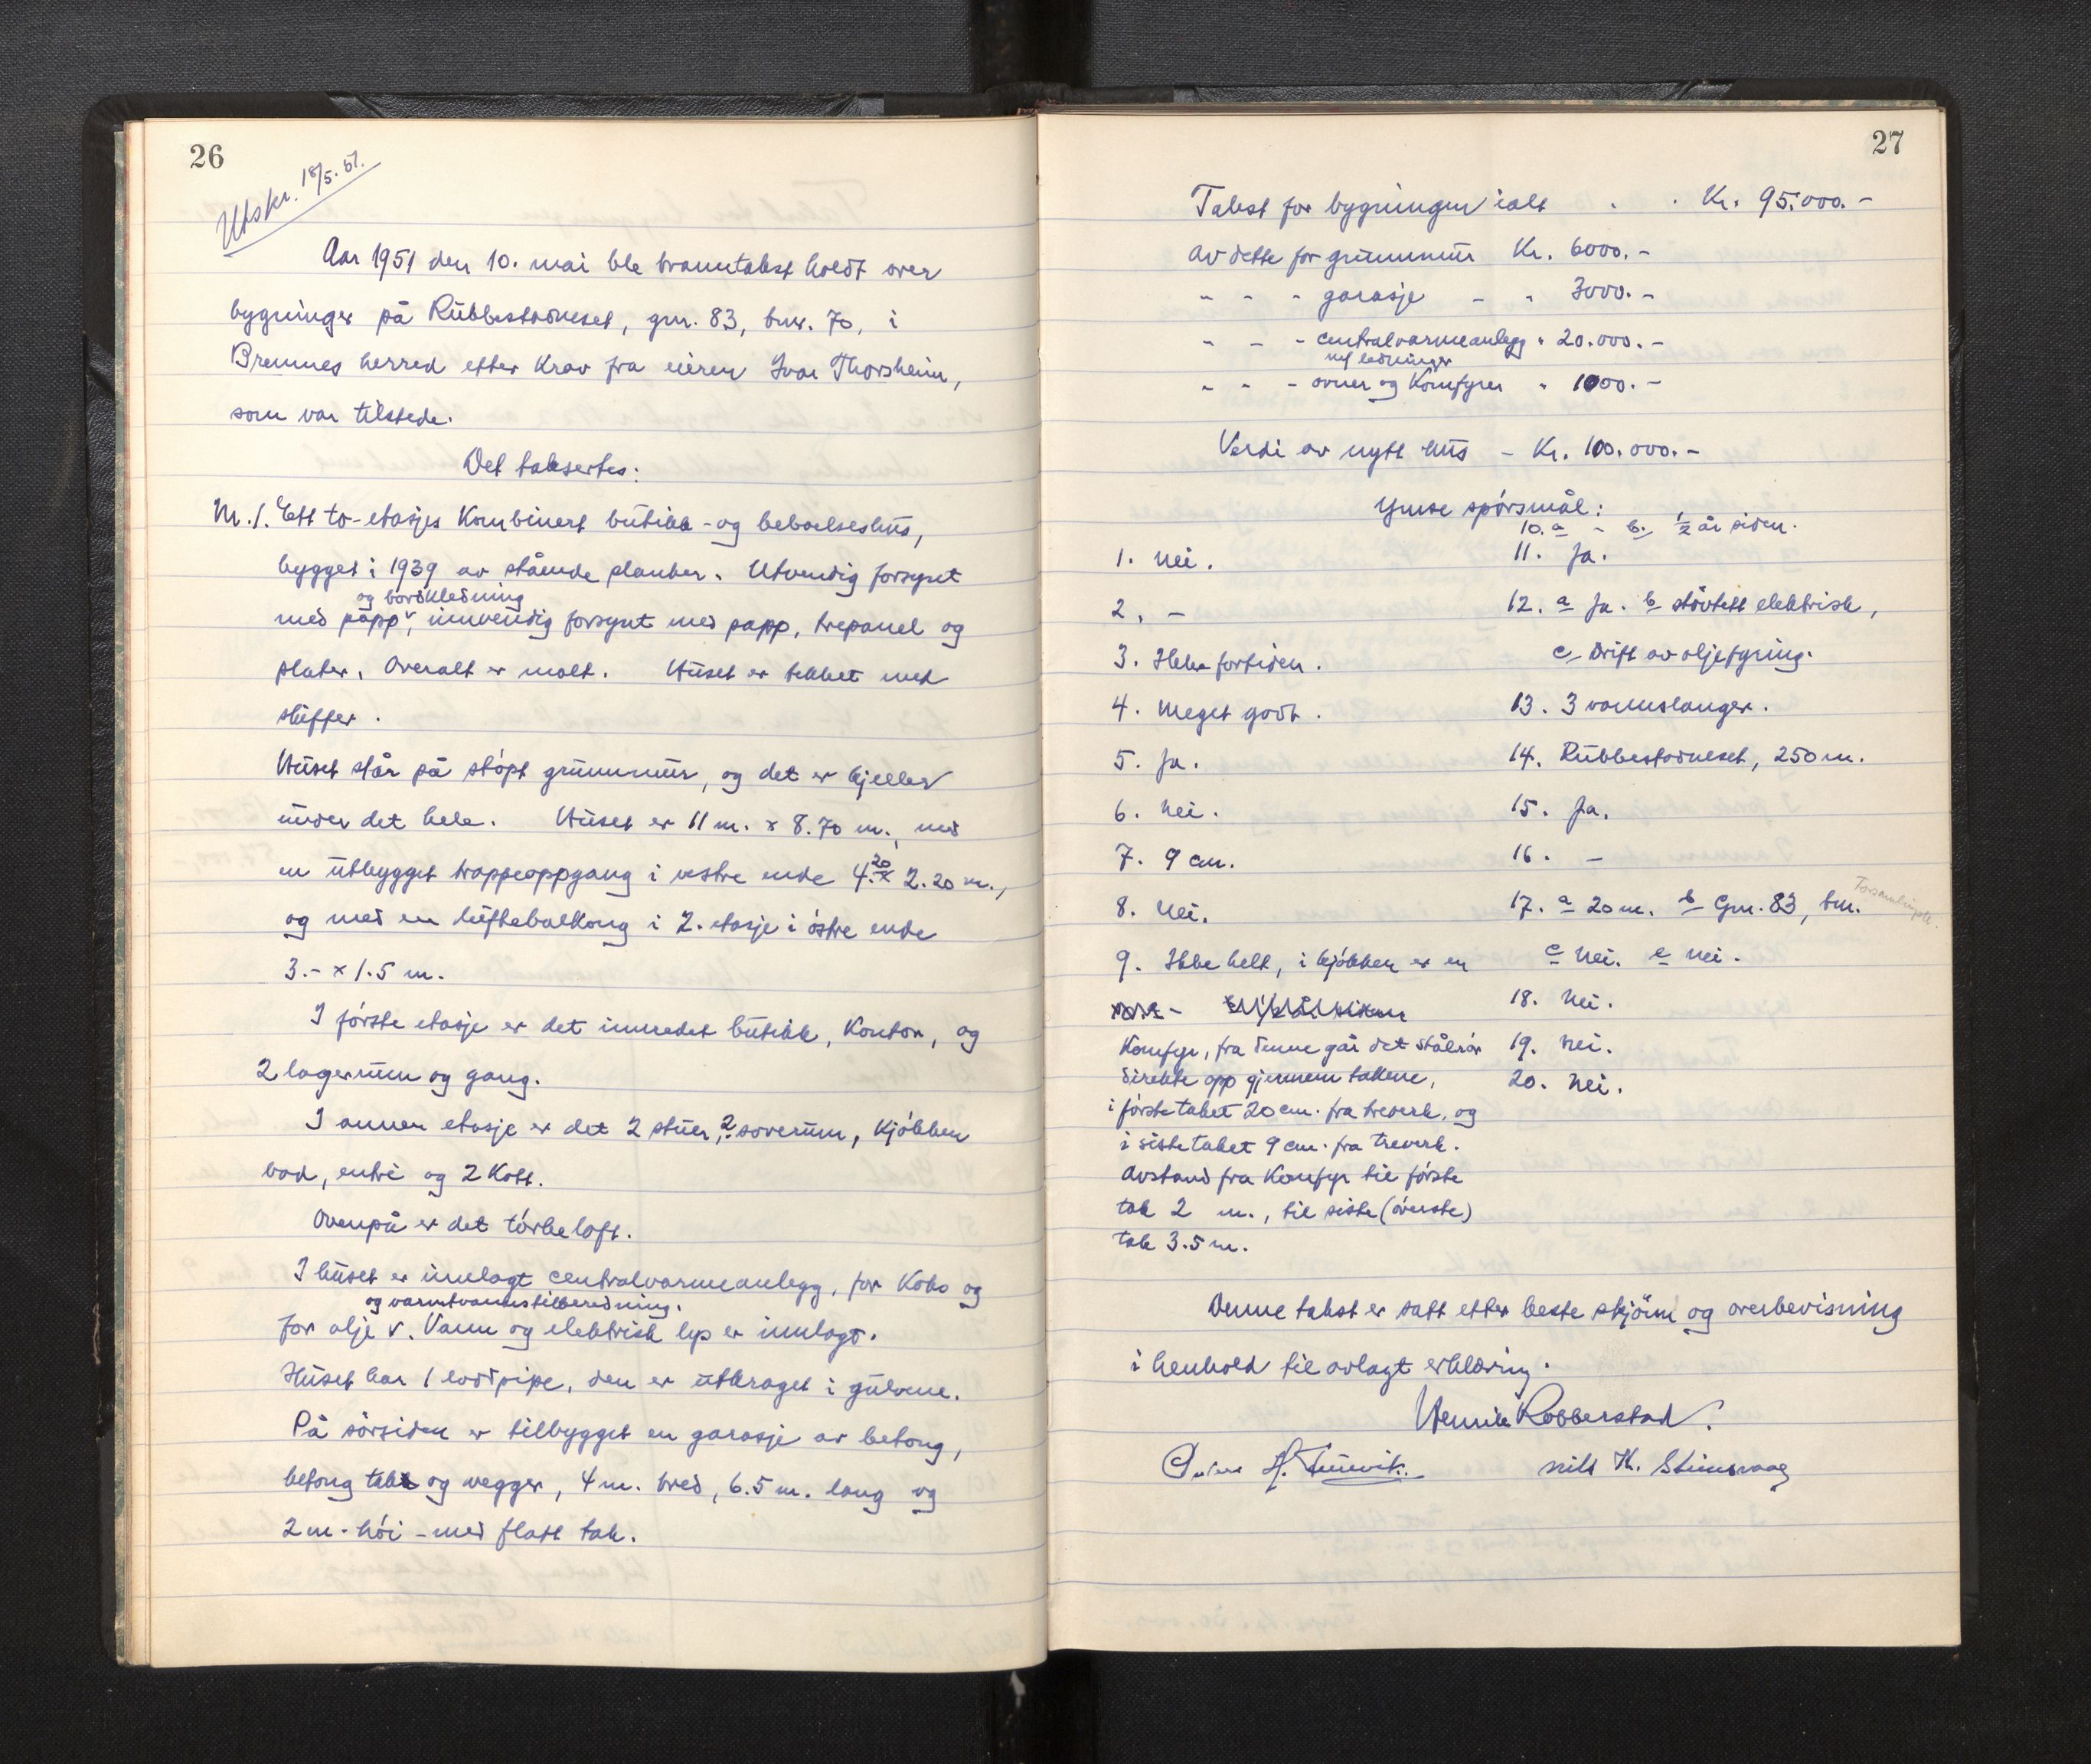 26
Utskr. 18/5.51.
Aar 1951 den 10. mai ble branntakst holdt over
bygninger på Rubbestadneset, gnr. 83, bnr. 70, i
Bremnes herred etter krav fra eieren Ivar Thorsheim,
som var tilstede.
Det taksertes:
M. 1. Ett to-etasjes kombinert butikk- og beboelseshus,
bygget i 1939 av stående planker. Utvendig forsynt
og bordkledning
med papp v, innvendig forsynt med papp, trepanel og
plater. Overalt er malt. Huset er tekket med
skiffer.
Huset står på støpt grunnmur, og det er kjeller
under det hele. Huset er 11 m. x 8.70 m., med
en utbygget trappeoppgang i vestre ende 4.20 x 2.20 m.,
og med en luftebalkong i 2. etasje i østre ende
3.- x 1.5 m.
I første etasje er det innredet butikk, kontor, og
2 lagerrum og gang.
I annen etasje er det 2 stuer, 2 soverum, kjøkken
bad, entré og 2 kott.
Ovenpå er det tørkeloft.
I huset er innlagt centralvarmeanlegg, for koks og
og varmtvannstilberedning.
for olje v. Vann og elektrisk lys er innlagt.
Huset har 1 loddpipe, den er utkraget i gulvene.
På sørsiden er tilbygget en garasje av betong,
betong tak og vegger, 4 m. bred, 6.5 m. lang og
2 m. høi - med flatt tak.
27
Takst for bygningen ialt . . Kr. 95.000.-
Av dette for grunnmur Kr. 6000.-
" " " garasje - " 3000.-
" " " centralvarmeanlegg " 20.000.-
m/ ledninger
" " " ovner og komfyrer " 1000.-
Verdi av nytt hus - Kr. 100.000.-
Ymse spørsmål:
1. Nei.
2. -
3. Ikke fortiden.
4. Meget godt.
5. Ja.
6. Nei.
7. 9 cm.
8. Nei.
9. Ikke helt, i kjøkken er en
komfyr, fra denne går det stålrør
direkte opp gjennem takene,
i første taket 20 cm. fra treverk, og
i siste taket 9 cm. fra treverk.
Avstand fra komfyr til første
tak 2 m., til siste (øverste)
tak 3.5 m.
10. a - b. 1/2 år siden.
11. Ja.
12. a Ja. b støvtett elektrisk,
c Drift av oljefyring.
13. 3 vannslanger.
14. Rubbestadneset, 250 m.
15. Ja.
16. -
17. a 20 m. b Gnr. 83, bnr.
c Nei. e Nei.
18. Nei.
19. Nei.
20. Nei.
Denne takst er satt etter beste skjønn og overbevisning
i henhold til avlagt erklæring.
Henrik Robberstad.
Nils K. Stinesvaag